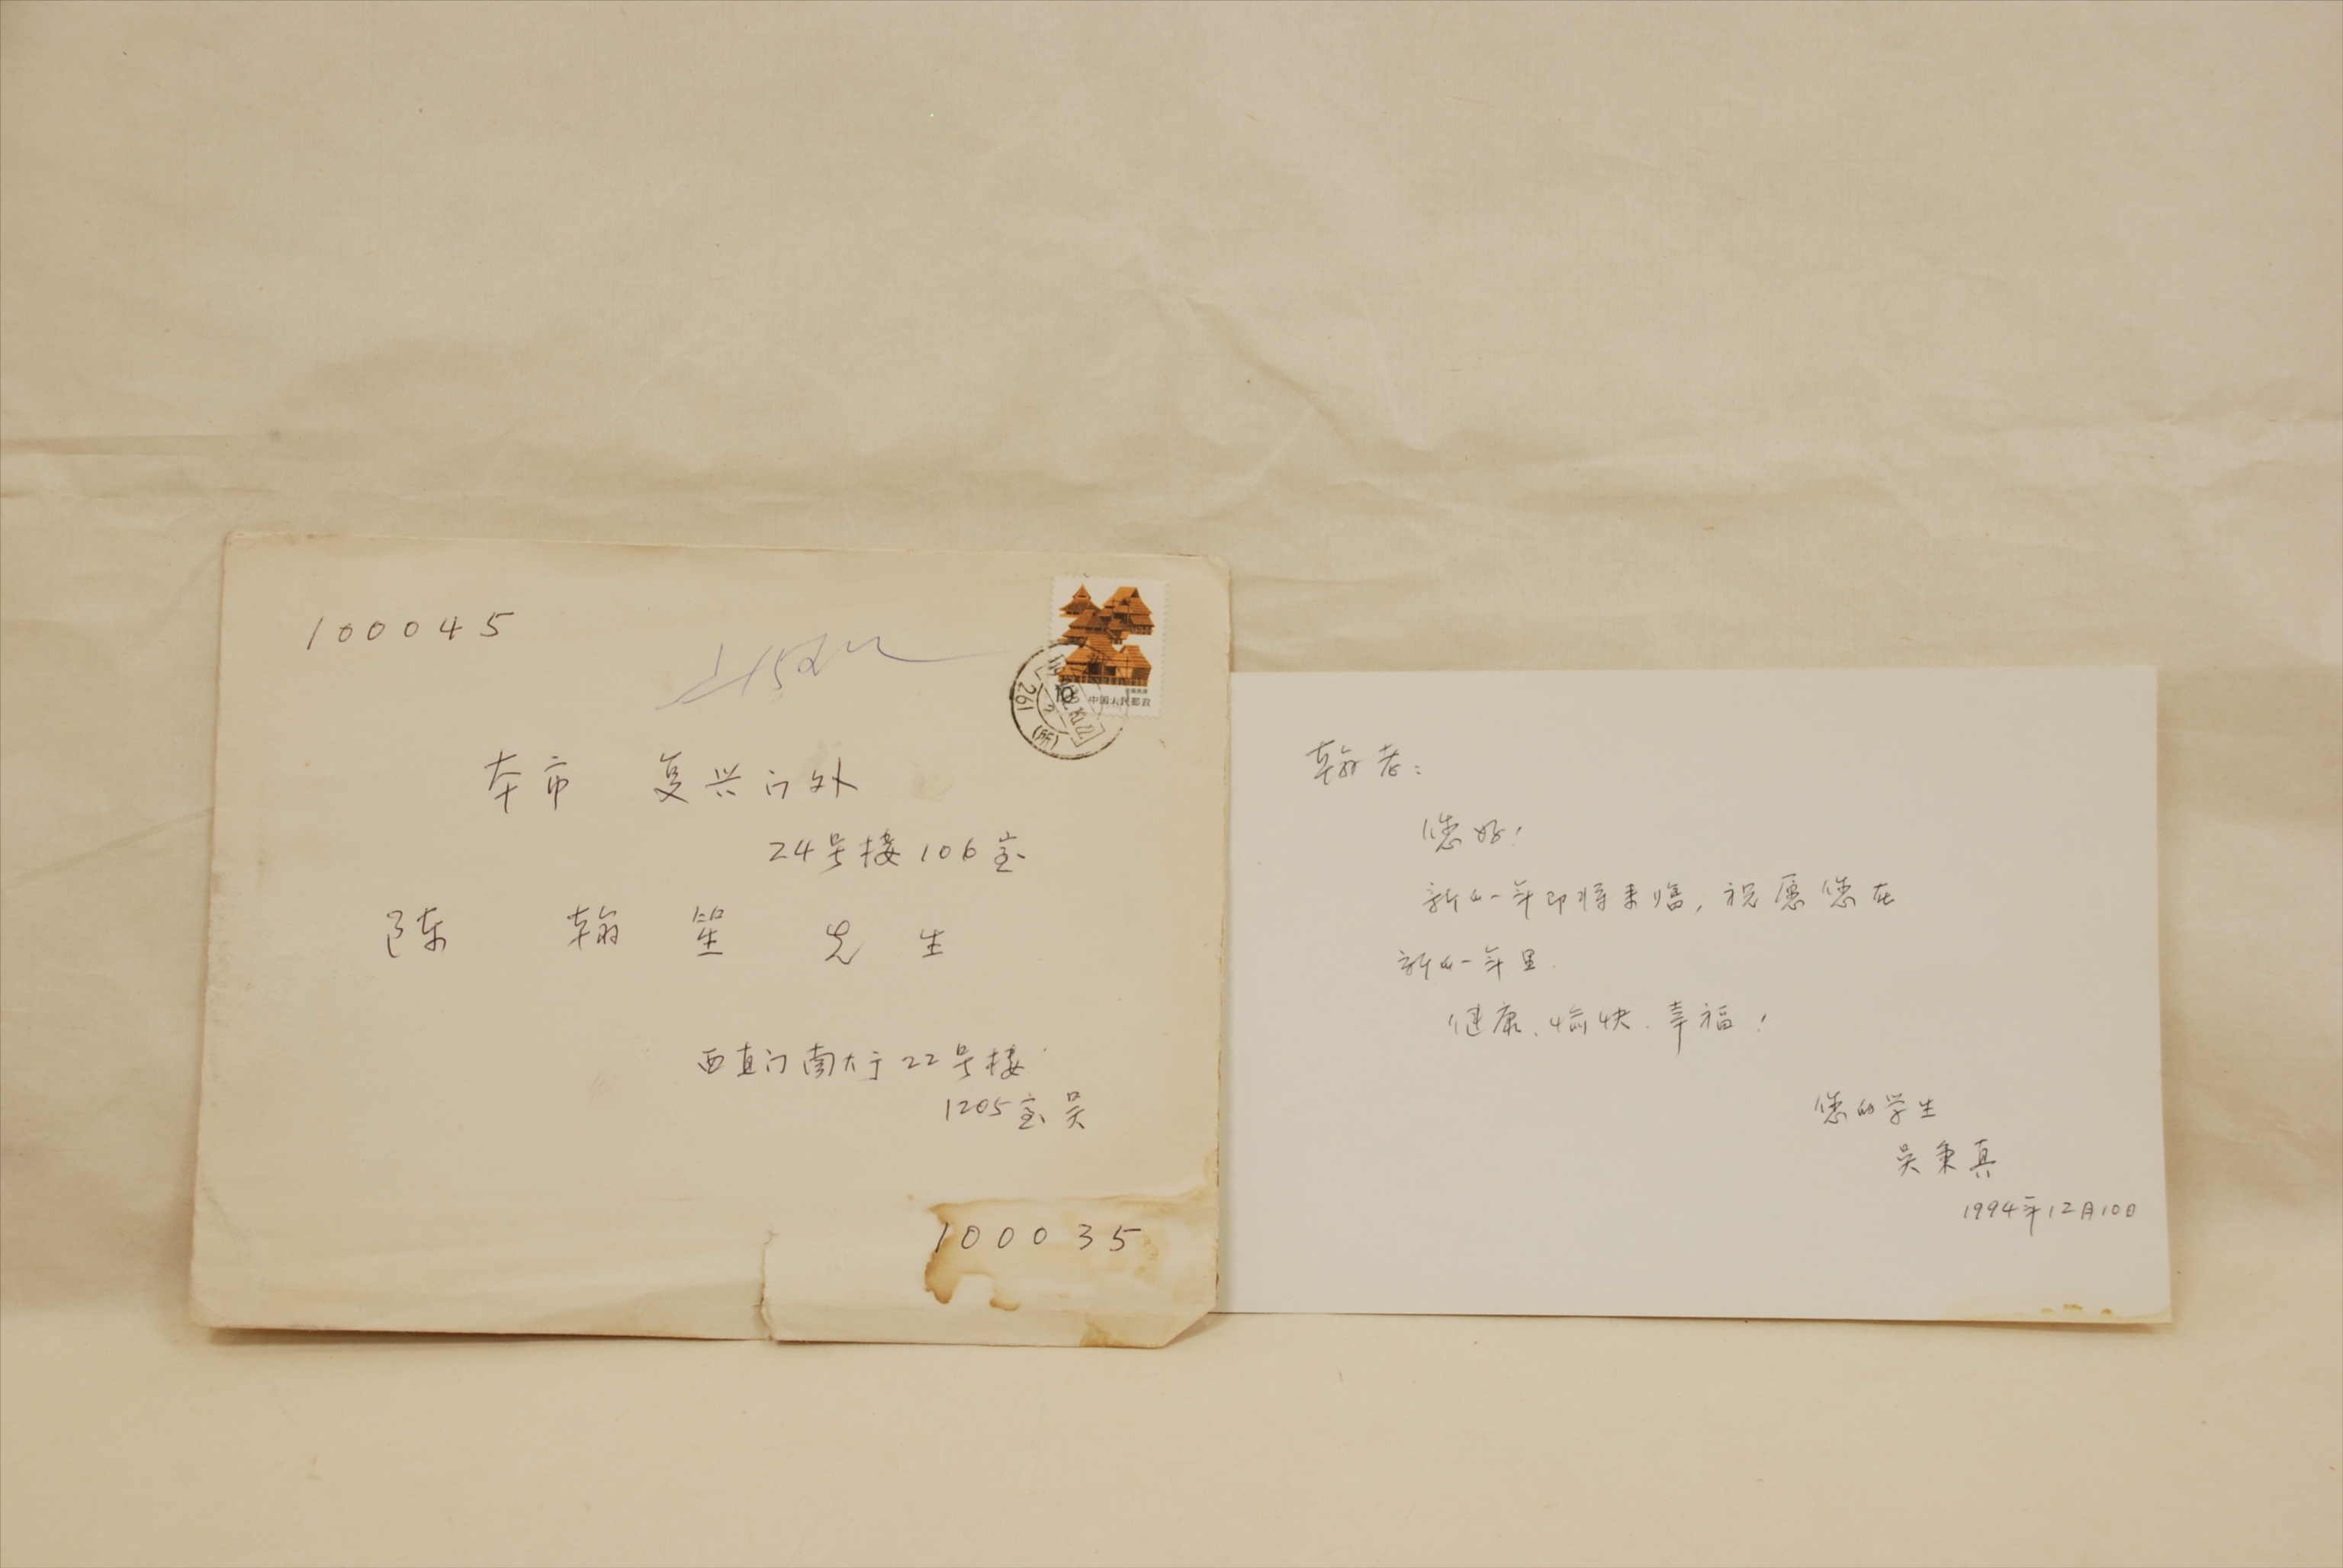 100045
本市 复兴门外
24号楼106室
陈 翰 笙 先 生
西直门南大于22号楼
1205室吴
100035
10
中国人民邮政
261 (所)
翰老:
您好!
新的一年即将来临,祝愿您在
新的一年里
健康、愉快、幸福!
您的学生
吴秉真
1994年12月10日